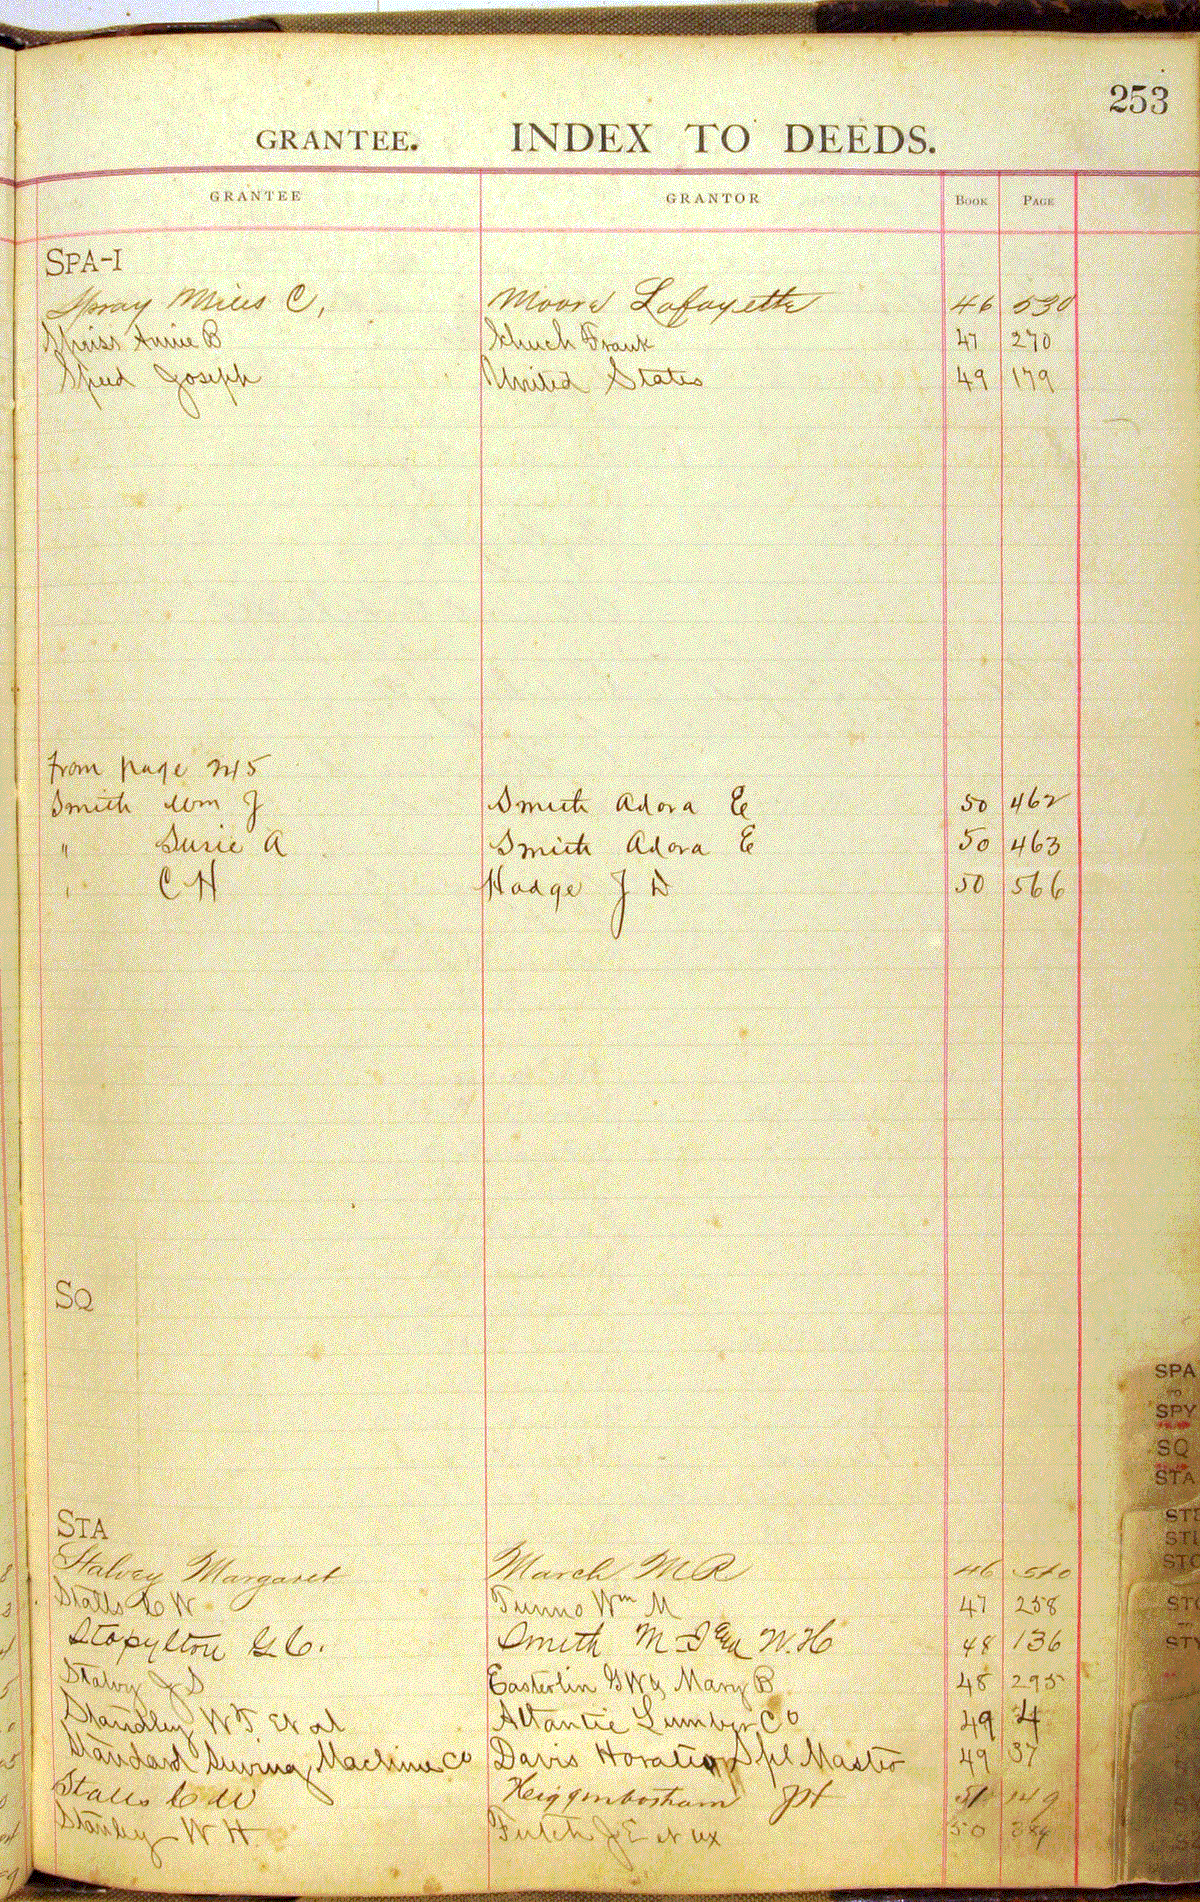 253
GRANTEE. INDEX TO DEEDS.
GRANTEE GRANTOR BOOK PAGE
SPA-I
Spray Miles C, Moore Lafayette 46 530
Spriss Annie B Schuch Frank 47 270
Speed Joseph United States 49 179
From page 245
Smith Wm J Smith Adora E 50 462
" Susie A Smith Adora E 50 463
" C H Hodge J D 50 566
SQ
STA
Stalvey Margaret March M R 46 540
Stalls C W Tunno Wm M 47 258
Stapylton G C. Smith M J W. H 48 136
Stalvy J S Easterlin G W & Mary B 48 295
Standley W T Et al Atlantic Lumber Co 49 4
Standard Sewing Machine Co Davis Horatio Spl Master 49 37
Stalls C W Higginbotham J H 51 149
Stanley W H Futch J E et ux 50 384
SPA
TO
SPY
SQ
STA
STE
STI
STO